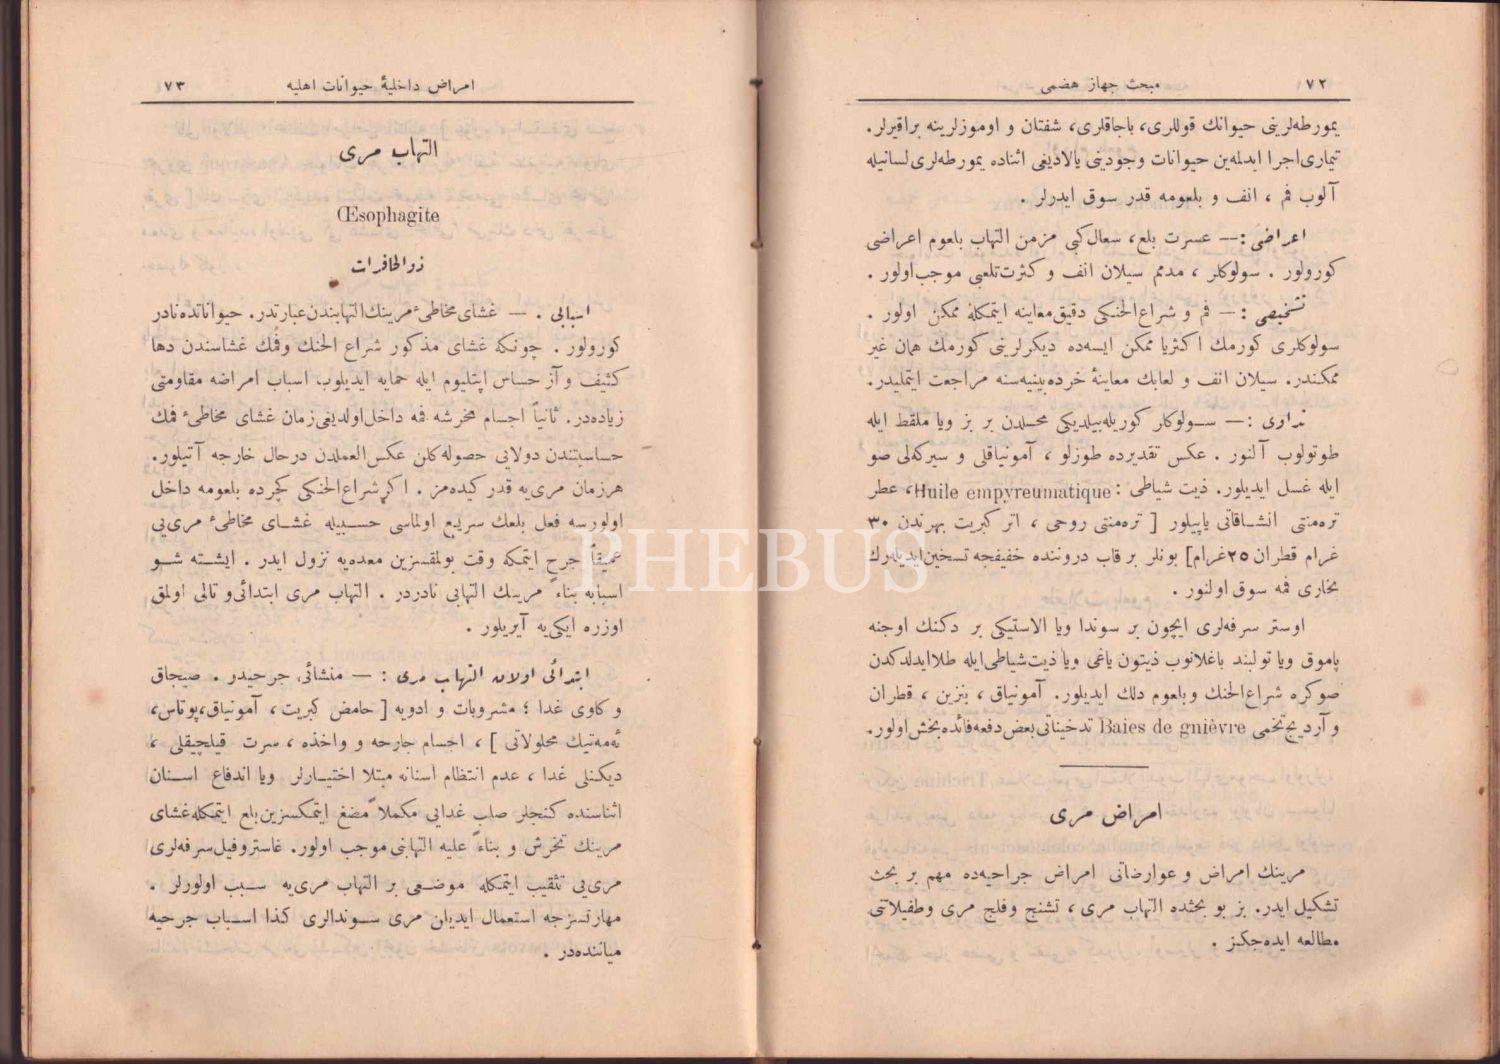 ٧٢ مبحث جهاز هضمى
يمورطه‌لرينى حيوانك قوللرى، باجاقلرى، شفتان و اوموزلرينه براقيرلر.
تيمارى اجرا ايدلمه‌ين حيوانات وجودينى يالاديغى اثناده يمورطه‌لرى لسانيله
آلوب فم ، انف و بلعومه قدر سوق ايدرلر .
اعراضى :— عسرت بلع، سعال كبى مزمن التهاب بلعوم اعراضى
كورولور . سولوكلر ، مدمم سيلان انف و كثرت تلعبى موجب اولور .
تشخيصى :— فم و شراع الحنكى دقيق معاينه ايتمكله ممكن اولور .
سولوكلرى كورمك اكثريا ممكن ايسه‌ده ديكرلرينى كورمك همان غير
ممكندر. سيلان انف و لعابك معاينۀ خرده‌بينيه‌سنه مراجعت ايتمليدر.
تداوى :— سولوكلر كوريله‌بيلديكى محلدن بر بز ويا ملقط ايله
طوتولوب آلنور . عكس تقديرده طوزلو ، آمونياقلى و سيركه‌لى صو
ايله غسل ايديلور. ذيت شياطى : Huile empyreumatique، عطر
تره‌منتى انشاقاتى ياپيلور [ تره‌منتى روحى ، اتر كبريت بهرندن ٣٠
غرام قطران ٢٥ غرام] بونلر بر قاب دروننده خفيفجه تسخين ايديله‌رك
بخارى فمه سوق اولنور .
اوستر سرفه‌لرى ايچون بر سوندا ويا الاستيكى بر دكنك اوجنه
پاموق ويا تولبند باغلانوب ذيتون ياغى ويا ذيت شياطى ايله طلا ايدلدكدن
صوكره شراع الحنك و بلعوم دلك ايديلور. آمونياق ، بنزين ، قطران
و آرديج تخمى Baies de gnièvre تدخيناتى بعض دفعه فائده‌بخش اولور.
امراض مرى
مرينك امراض و عوارضاتى امراض جراحيه‌ده مهم بر بحث
تشكيل ايدر. بز بو بحثده التهاب مرى ، تشنج و فلج مرى و طفيلاتنى
مطالعه ايده‌جكز .
امراض داخليۀ حيوانات اهليه ٧٣
التهاب مرى
Œsophagite
ذوالحافرات
اسبابى . — غشاى مخاطىٔ مرينك التهابندن عبارتدر. حيواناتده نادر
كورولور . چونكه غشاى مذكور شراع الحنك و فمك غشاسندن دها
كثيف و آز حساس اپتليوم ايله حمايه ايديلوب، اسباب امراضه مقاومتى
زياده‌در. ثانياً اجسام مخرشه فمه داخل اولديغى زمان غشاى مخاطىٔ فمك
حساسيتندن دولايى حصوله كلن عكس العملدن درحال خارجه آتيلور.
هرزمان مرى‌يه قدر كيده‌مز . اكر شراع الحنكى كچرده بلعومه داخل
اولورسه فعل بلعك سريع اولماسى حسبيله غشاى مخاطىٔ مرى‌يى
عميقاً جرح ايتمكه وقت بولمقسزين معده‌يه نزول ايدر . ايشته شو
اسبابه بناءً مرينك التهابى نادردر . التهاب مرى ابتدائى و تالى اولمق
اوزره ايكى‌يه آيريلور .
ابتدائى اولان التهاب مرى : — منشائى جرحيدر . صيجاق
و كاوى غدا ؛ مشروبات و ادويه [ حامض كبريت ، آمونياق، پوتاس،
ئه‌مه‌تيك محلولاتى ] ، اجسام جارحه و واخذه ، سرت قيلچيقلى ،
ديكنلى غدا ، عدم انتظام اسنانه مبتلا اختيارلر ويا اندفاع اسنان
اثناسنده كنجلر صلب غدايى مكملاً مضغ ايتمكسزين بلع ايتمكله غشاى
مرينك تخرش و بناءً عليه التهابنى موجب اولور. غاستروفيل سرفه‌لرى
مرى‌يى تثقيب ايتمكله موضعى بر التهاب مرى‌يه سبب اولورلر .
مهارتسزجه استعمال ايديلن مرى سوندالرى كذا اسباب جرحيه
مياننده‌در .
PHEBUS